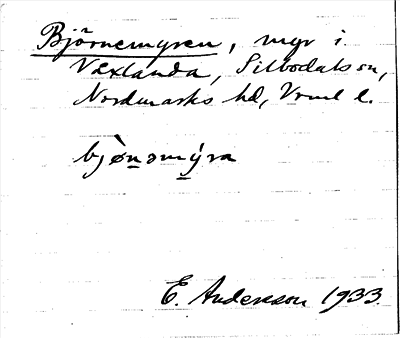 Björnemyren, myr i
Växlanda, Silbodals sn,
Nordmarks hd, Vrml l.
bjø̀nəmýra
E. Andersson 1933.